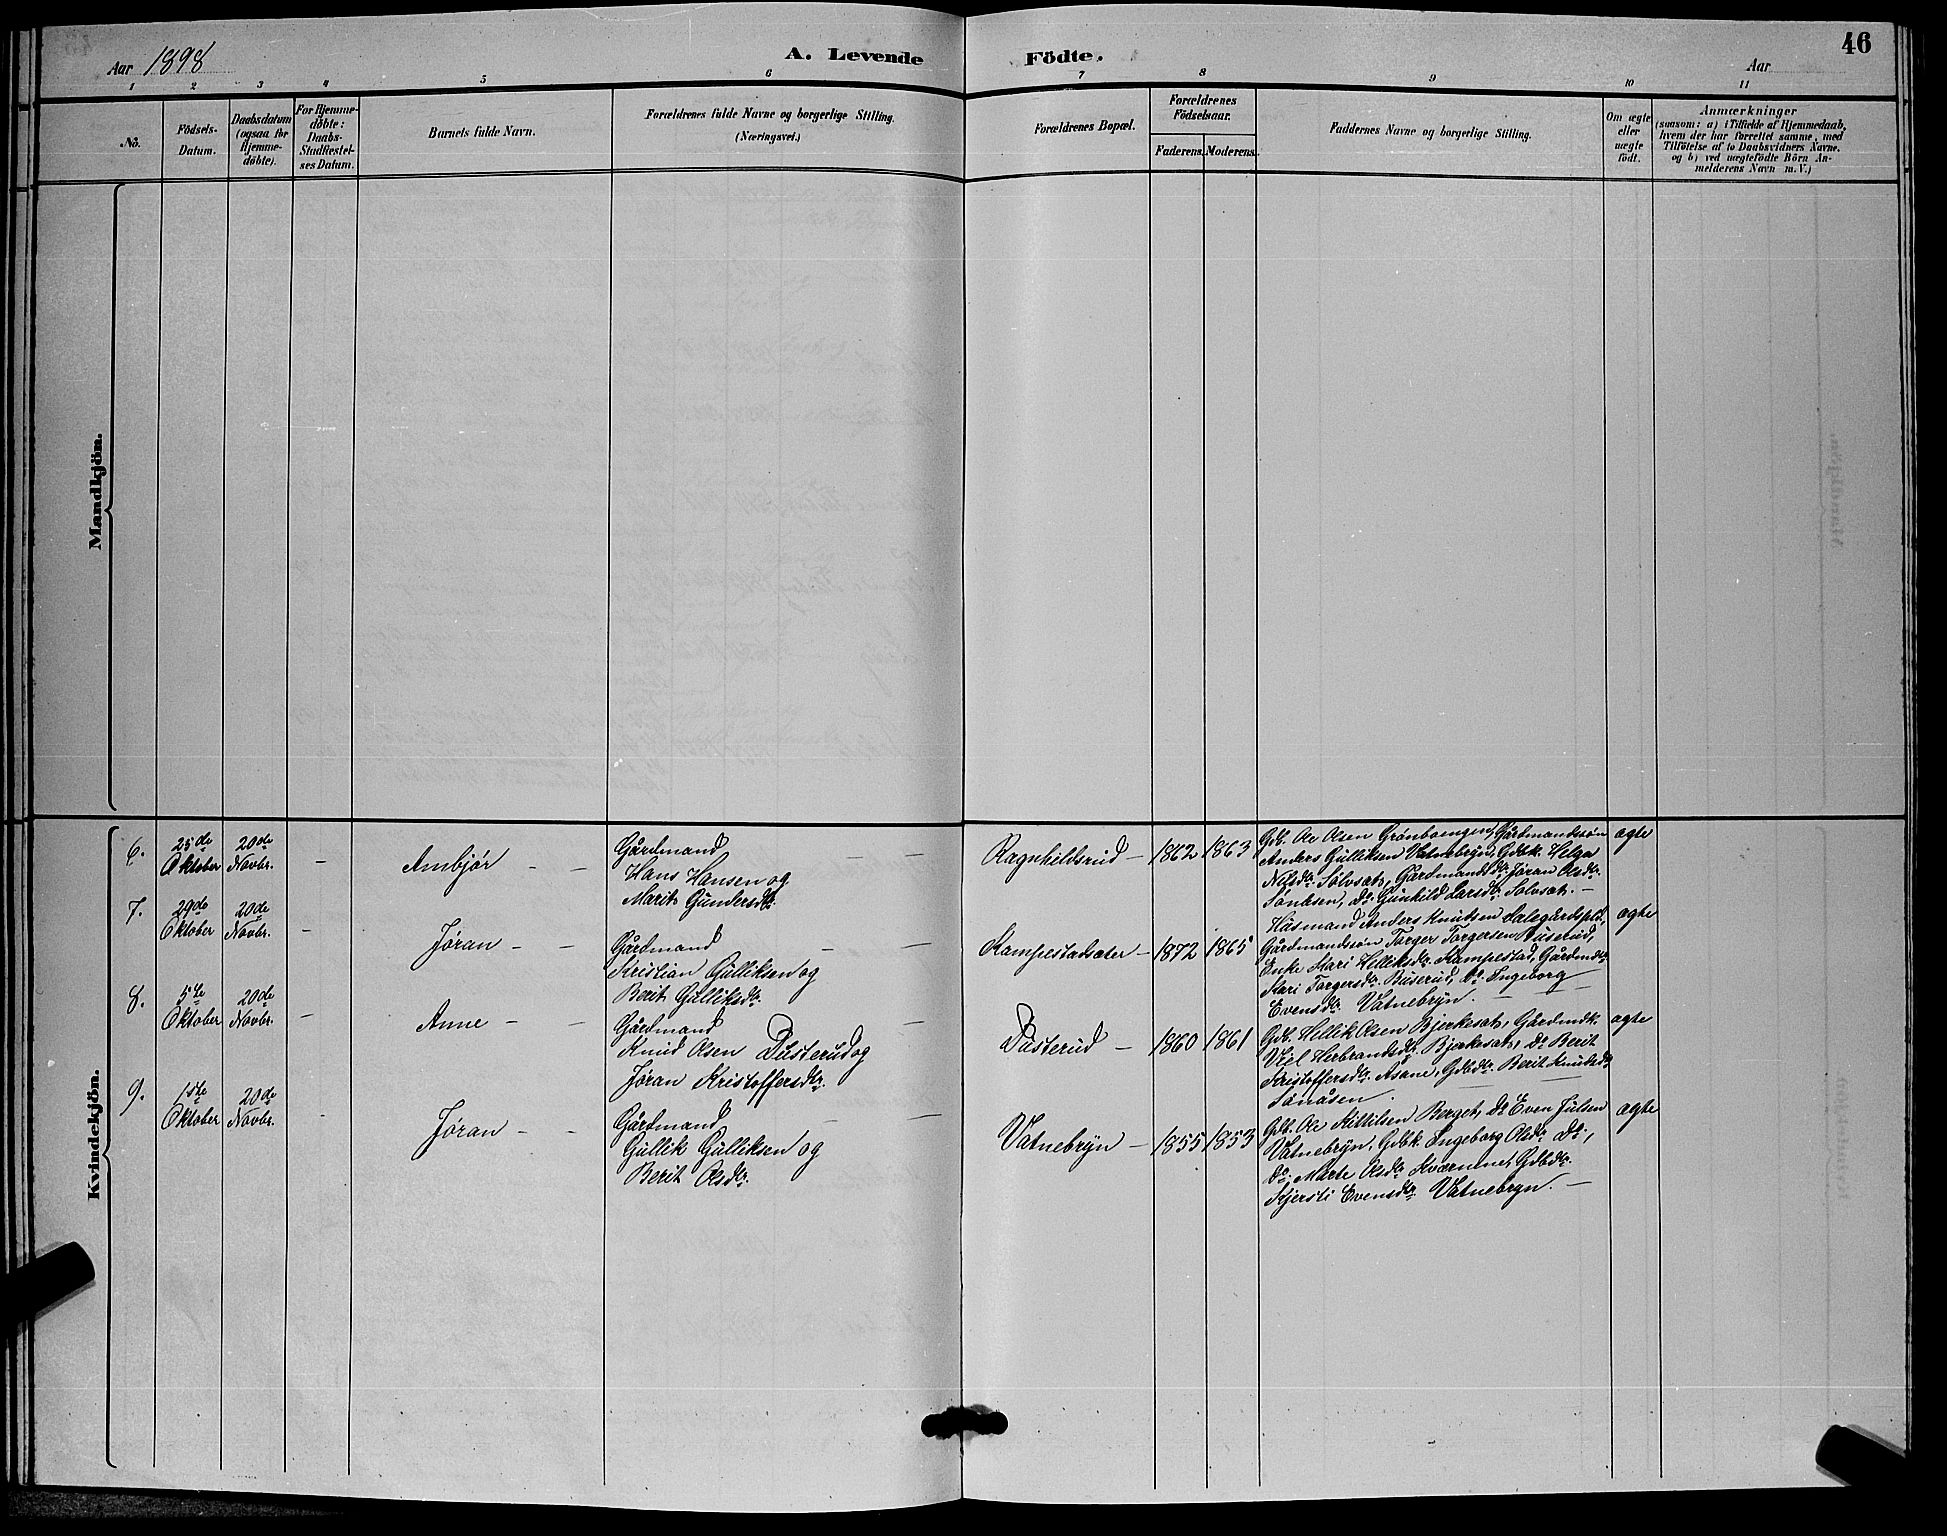 46
Aar 1898
A. Levende Födte.
Aar
1 2 3 4 5 6 7 8 9 10 11
No.
Födsels-
Datum.
Daabsdatum
(ogsaa for
Hjemme-
døbte).
For Hjemme-
døbte:
Daabs-
Stadfæstel-
ses Datum.
Barnets fulde Navn.
Forældrenes fulde Navne og borgerlige Stilling.
(Næringsvei.)
Forældrenes Bopæl.
Forældrenes
Födselsaar.
Faderens. Moderens.
Faddernes Navne og borgerlige Stilling.
Om ægte
eller
uægte
født.
Anmærkninger
(saasom: a) i Tilfælde af Hjemmedaab,
hvem der har forrettet samme, med
Tilföielse af to Daabsvidners Navne,
og b) ved uægtefödte Börn An-
melderens Navn m. V.)
Mandkjön.
Kvindekjön.
6.
25de
Oktober
20de
Novbr.
–
Ambjør – –
Gårdmand
Hans Hansen og
Marit Gundersdtr.
Ragnhildsrud –
1862
1863
Gdb. Ole Olsen Grønboengen, Gårdmandssøn
Anders Gulliksen Vatnebryn, Gdbk. Helga
Nilsdtr. Solvsat, Gårdmandsdtr. Jøran Olsdtr.
Sønåsen, do. Gunhild Larsdtr. Solvsat. –
ægte
7.
29de
Oktober
20de
Novbr.
–
Jøran – –
Gårdmand
Kristian Gulliksen og
Berit Gulliksdtr.
Kampestadsæter –
1872
1865
Husmand Anders Knutsen Dalegårdspld.
Gårdmandssøn Torger Torgersen Buserud,
Enke Mari Helliksdtr. Kampestad, Gårdmdtr.
Mari Torgersdtr. Buserud, do. Ingeborg
Evensdtr. Vatnebryn. –
ægte
8.
5te
Oktober
20de
Novbr.
–
Anne – –
Gårdmand
Knud Olsen Dusterud og
Jøran Kristoffersdtr.
Dusterud –
1860
1861
Gdb. Hellik Olsen Bjerkesat, Gårdmdk.
Viel Herbrandsdtr. Bjerkesat, do. Berit
Kristoffersdtr. Asane, Gdbdtr. Berit Knudsdtr.
Sønåsen.
ægte
9.
1ste
Oktober
20de
Novbr.
–
Jøran – –
Gårdmand
Gullik Gulliksen og
Berit Olsdtr.
Vatnebryn –
1855
1853
Gdb. Ole Kittilsen Berget, do. Even Julsen
Vatnebryn, Gdbk. Ingeborg Olsdtr. do.,
do. Marte Olsdtr. Kværnene, Gdbdtr.
Kjersti Evensdtr. Vatnebryn. –
ægte